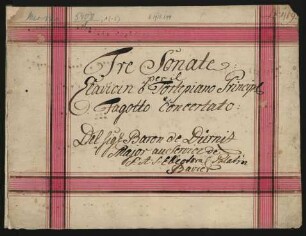 Tre Sonate
per il
Clavicin ô Fortepiano Principl
Fagotto Concertato:
Del Sigr Baron de Dürnis
Major au service de
S. A. S. l'Electeur Palatin
Bavier